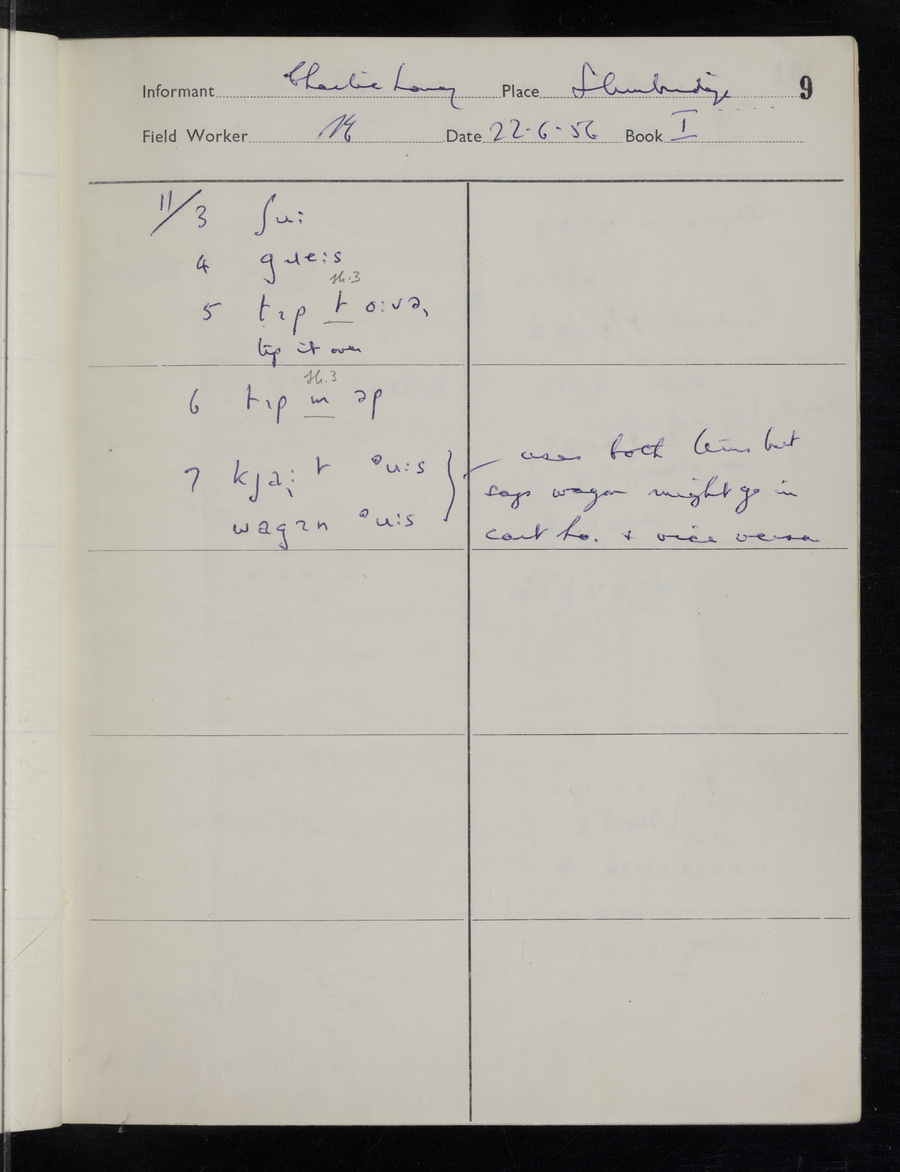 Informant Charlie Place Slimbridge 9
Field Worker Date 22-6-56 Book I
11/3 ʃuː
4 gɹeːs
sh.3
5 tɪp t oːvə,
tip it over
sh.3
6 tɪp m əp
7 kjaːt ᵊuːs
wagɪn ᵊuːs
uses both terms but
says wagon might go in
cart ho. + vice versa